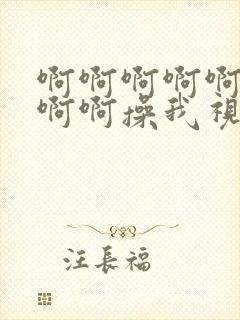 啊啊啊啊啊
啊啊操我視
汪長福